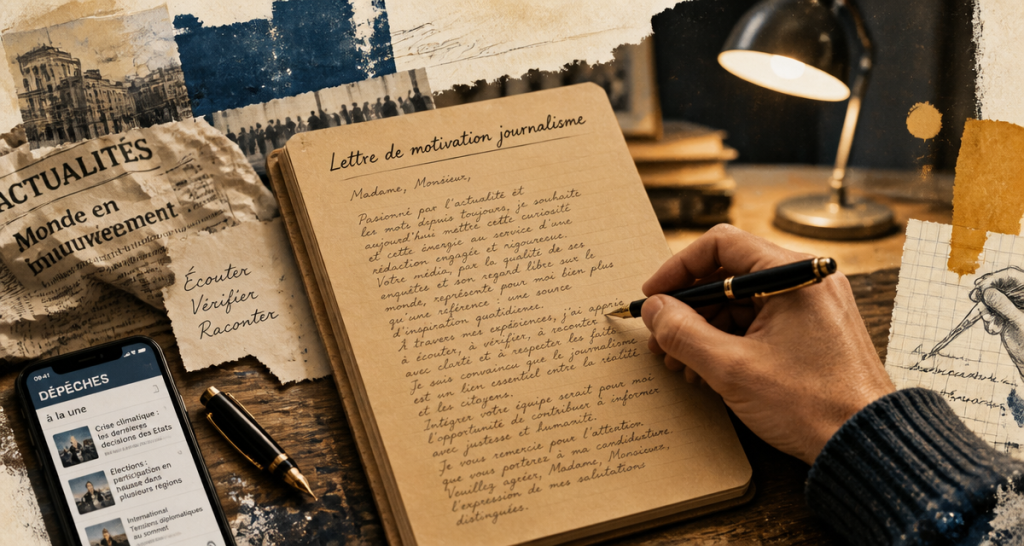 ACTUALITÉS
Monde en
Écouter
Vérifier
Raconter
09:41
DÉPÊCHES
à la une
Crise climatique :
les dernières
décisions des États
Élections :
participation en
hausse dans
plusieurs régions
International
Tensions diplomatiques
au sommet
Lettre de motivation journalisme
Madame, Monsieur,
Pasionné par l'actualité et
les mots depuis toujours, je souhaite
aujourd'hui mettre cette curiosité
et cette énergie au service d'une
rédaction engagée et rigoureuse.
Votre média, par la qualité de ses
enquêtes et son regard libre sur le
monde, représente pour moi bien plus
qu'une référence : une source
d'inspiration quotidienne.
À travers mes expériences, j'ai appris
à écouter, à vérifier, à raconter
avec clarté et à respecter les faits
Je suis convaincu que le journalisme
est un lien essentiel entre la réalité
et les citoyens.
Intégrer votre équipe serait pour moi
l'opportunité de contribuer à informer
avec justesse et humanité.
Je vous remercie pour l'attention
que vous porterez à ma candidature
Veuillez agréer, Madame, Monsieur,
l'expression de mes salutations
distinguées.